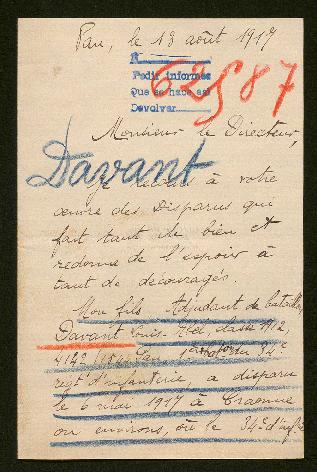 Pau, le 13 août 1917
R
Pedir informes
Que se hace así
Devolver
62587
Monsieur le Directeur,
Davant
Je recours à votre
œuvre des Disparus qui
fait tant de bien et
redonne de l'espoir à
tant de découragés
Mon fils Adjudant de bataillon
Davant Louis- classe 1912,
34e
regt d'infanterie, a disparu
le 6 mai 1917 à Craonne
ou environs, où le 34e d'infie